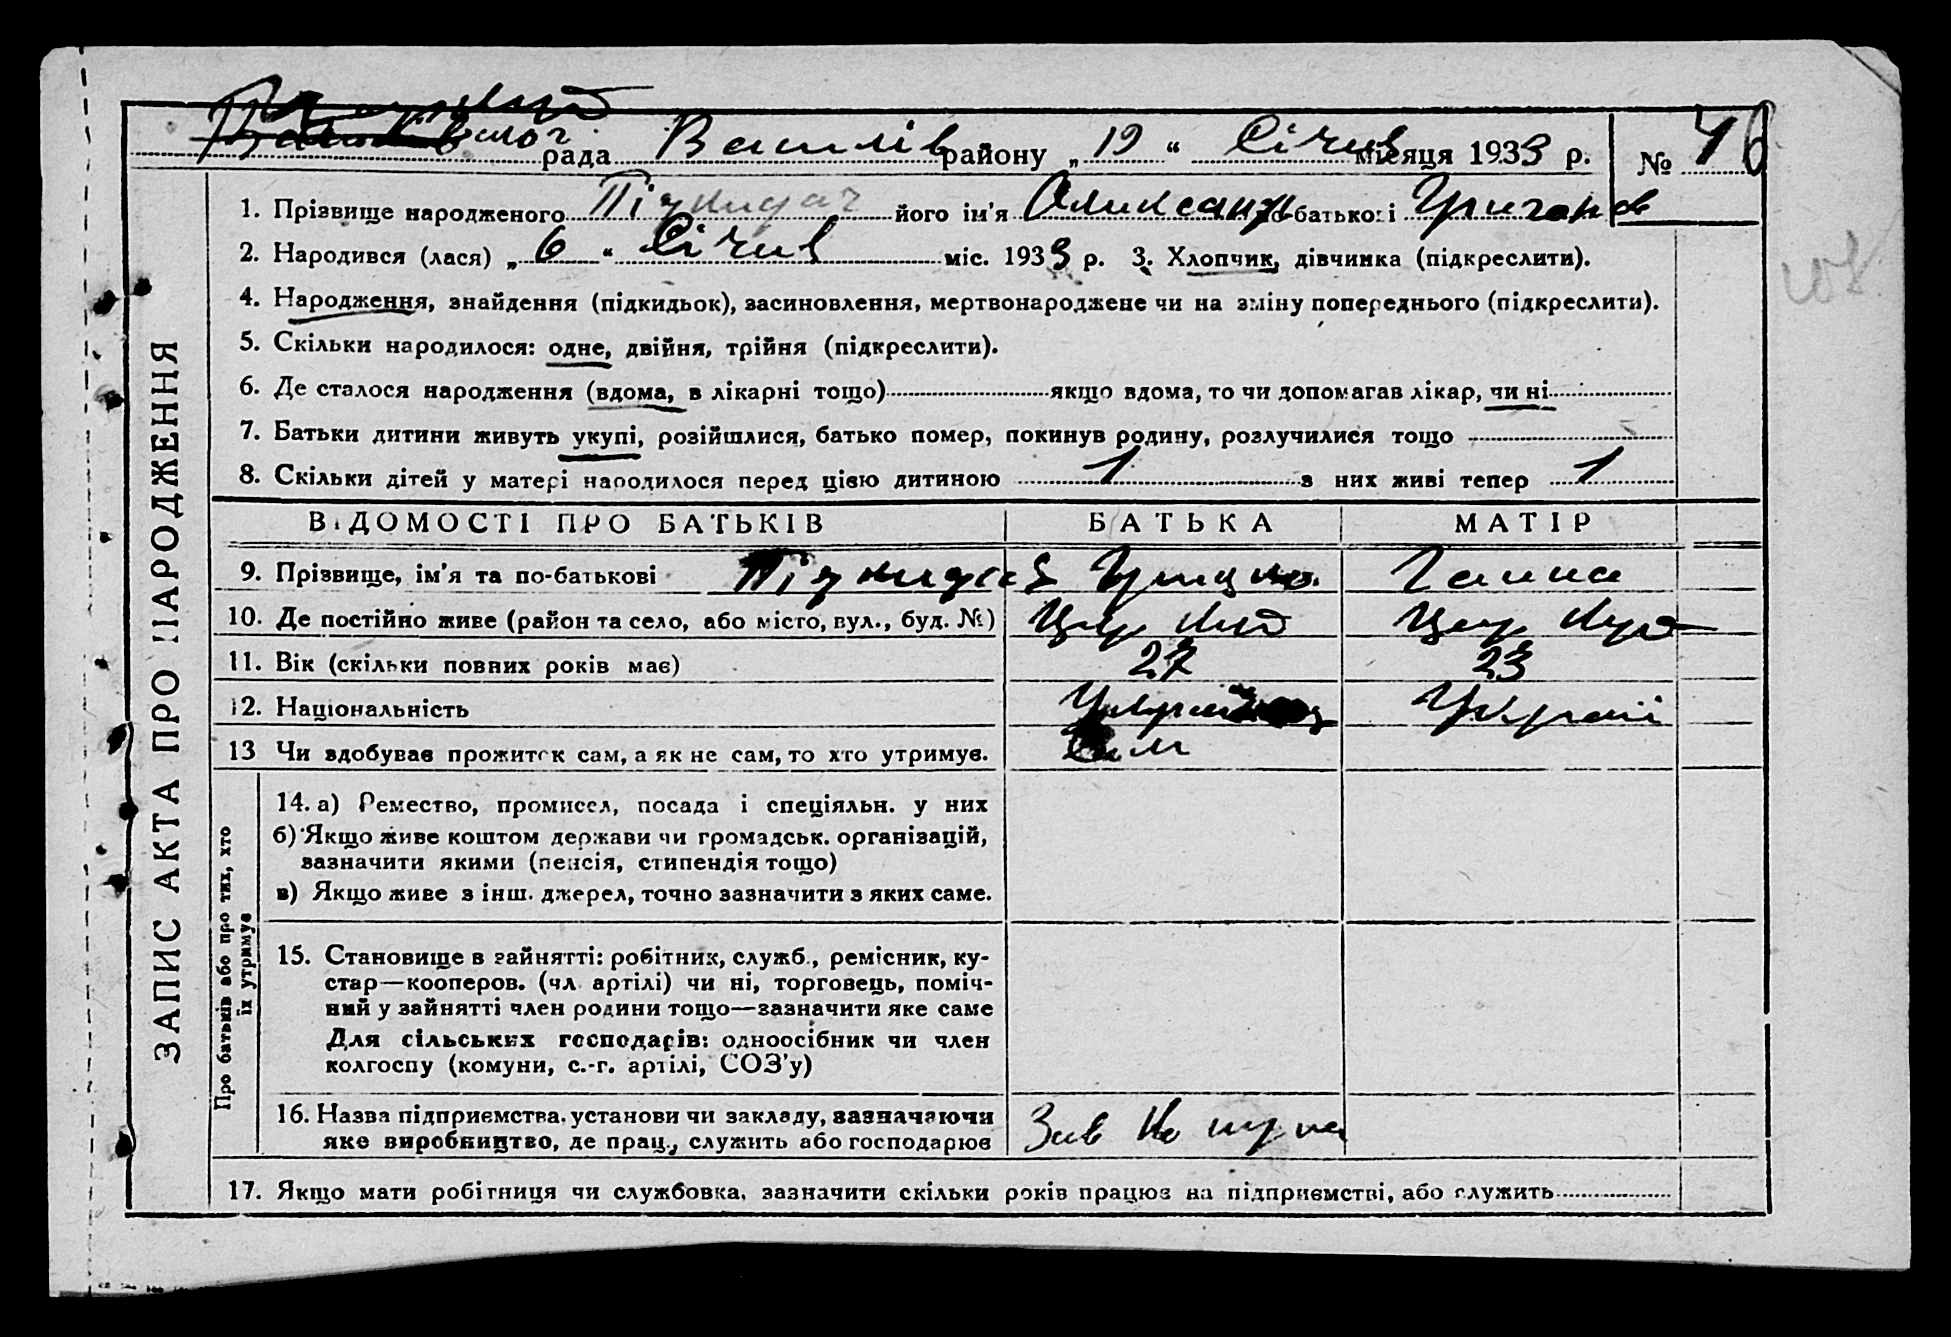 рада Василів району „ 19 “ Січня місяця 1933 р. №
1. Прізвище народженого Підкидач його ім'я Олександр по батькові Григоров
2. Народився (лася) „ 6 “ Січня міс. 1933 р. 3. Хлопчик, дівчинка (підкреслити).
4. Народження, знайдення (підкидьок), засиновлення, мертвонароджене чи на зміну попереднього (підкреслити).
5. Скільки народилося: одне, двійня, трійня (підкреслити).
6. Де сталося народження (вдома, в лікарні тощо) якщо вдома, то чи допомагав лікар, чи ні
7. Батьки дитини живуть укупі, розійшлися, батько помер, покинув родину, розлучилися тощо
8. Скільки дітей у матері народилося перед цією дитиною 1 з них живі тепер 1
ЗАПИС АКТА ПРО НАРОДЖЕННЯ
ВІДОМОСТІ ПРО БАТЬКІВ БАТЬКА МАТІР
9. Прізвище, ім'я та по-батькові Підкидач Грицько Ганна
10. Де постійно живе (район та село, або місто, вул., буд. №)
11. Вік (скільки повних років має) 27 23
12. Національність Украї
13 Чи здобуває прожиток сам, а як не сам, то хто утримує. Сам
Про батьків або про тих, хто їх утримує
14. а) Ремество, промисел, посада і спеціяльн. у них
б) Якщо живе коштом держави чи громадськ. організацій,
зазначити якими (пенсія, стипендія тощо)
в) Якщо живе з інш. джерел, точно зазначити з яких саме.
15. Становище в зайнятті: робітник, служб., ремісник, ку-
стар—кооперов. (чл. артілі) чи ні, торговець, поміч-
ний у зайнятті член родини тощо—зазначити яке саме
Для сільських господарів: одноосібник чи член
колгоспу (комуни, с.-г. артілі, СОЗ'у)
16. Назва підприємства, установи чи закладу, зазначаючи
яке виробництво, де прац., служить або господарює
17. Якщо мати робітниця чи службовка, зазначити скільки років працює на підприємстві, або служить